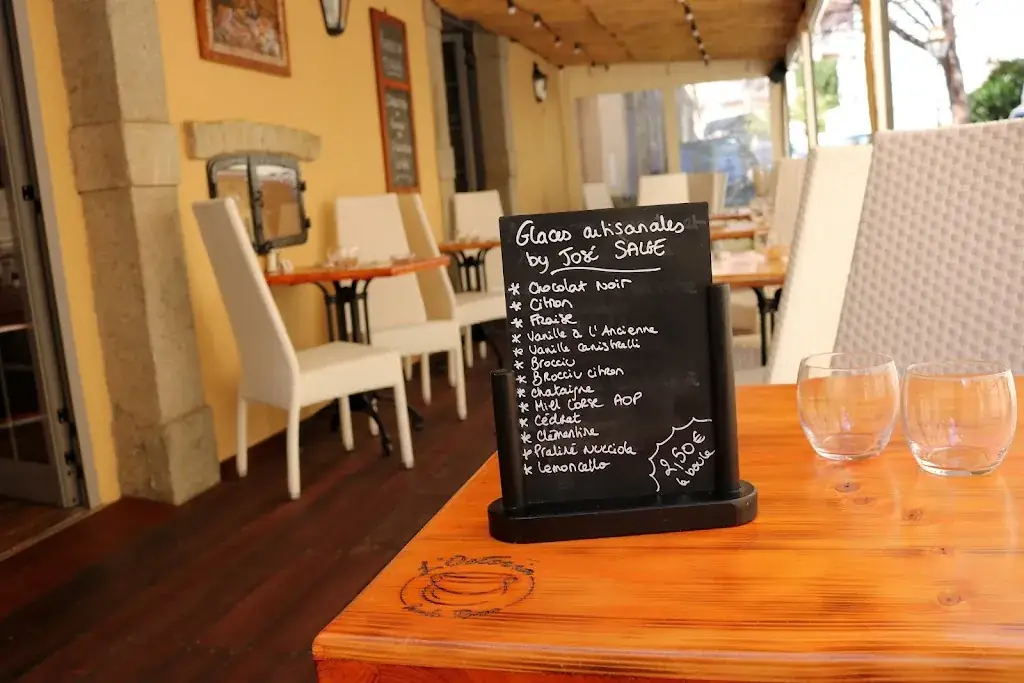 Glaces artisanales
by José SALGE
* Chocolat Noir
* Citron
* Fraise
* Vanille à l'Ancienne
* Vanille canistrelli
* Brocciu
* Brocciu citron
* chataigne
* Miel Corse AOP
* Cédrat
* Clémentine
* Praliné Nucciola
* Lemoncello
2,50€
la boule